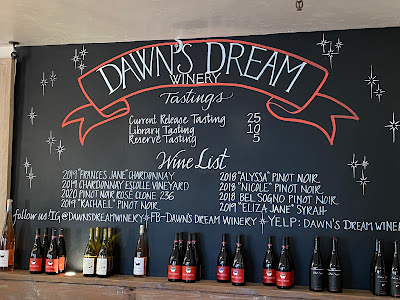 DAWN'S DREAM
WINERY
Tastings
Current Release Tasting 25
Library Tasting 10
Reserve Tasting 5
Wine List
2019 "FRANCES JANE" CHARDONNAY
2019 CHARDONNAY ESCOLLE VINEYARD
2020 PINOT NOIR ROSÉ CLONE 236
2019 "RACHAEL" PINOT NOIR
2018 "ALYSSA" PINOT NOIR
2018 "NICOLE" PINOT NOIR
2018 BEL SOGNO PINOT NOIR
2019 "ELIZA JANE" SYRAH
follow us! IG @DAWNSDREAMWINERY FB-DAWN'S DREAM WINERY YELP: DAWN'S DREAM WINE